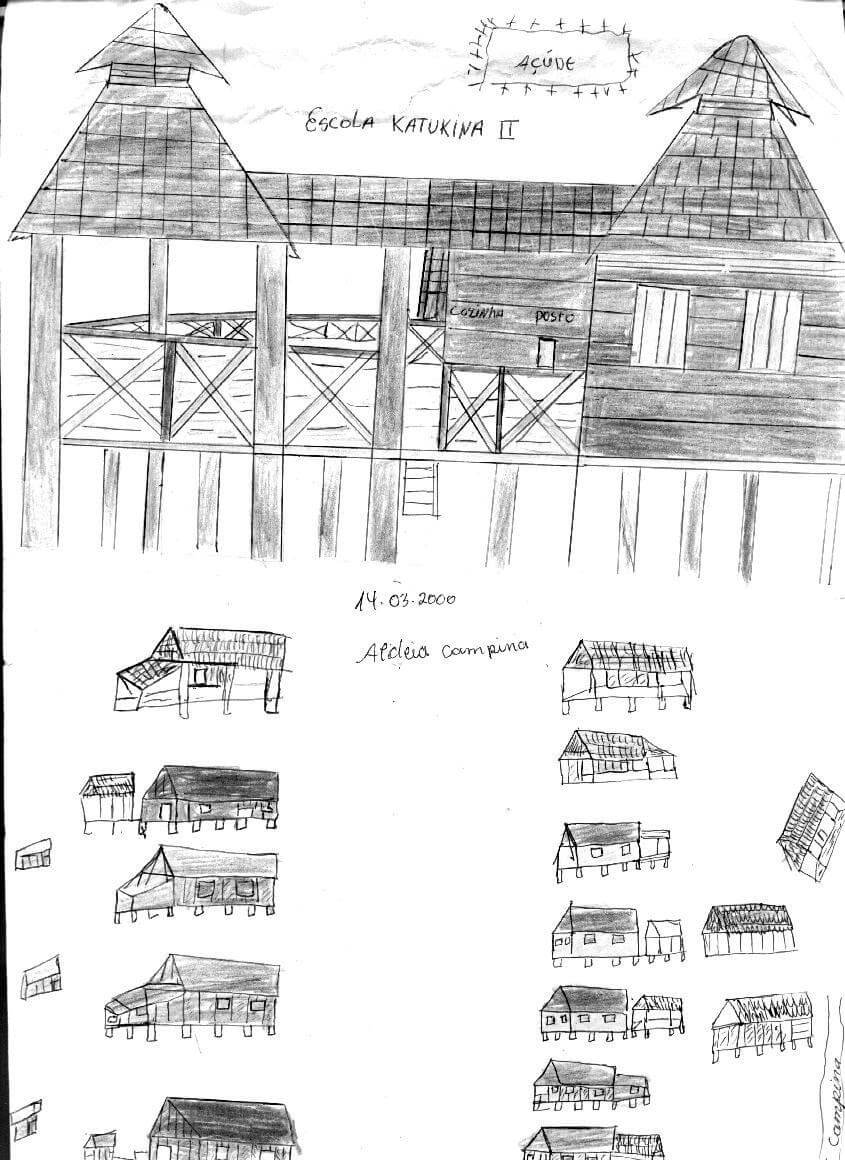 AÇÚDE
ESCOLA KATUKINA II
COZINHA POSTO
14.03.2000
Aldeia Campina
Campina